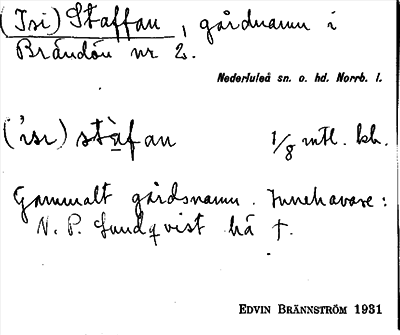 (Isi) Staffan, gårdnamn i
Brändön nr 2.
Nederluleå sn. o. hd. Norrb. l.
('isi) stàfan 1/8 mtl. kh.
Gammalt gårdsnamn. Innehavare:
N. P. Lundqvist hä †.
EDVIN BRÄNNSTRÖM 1931